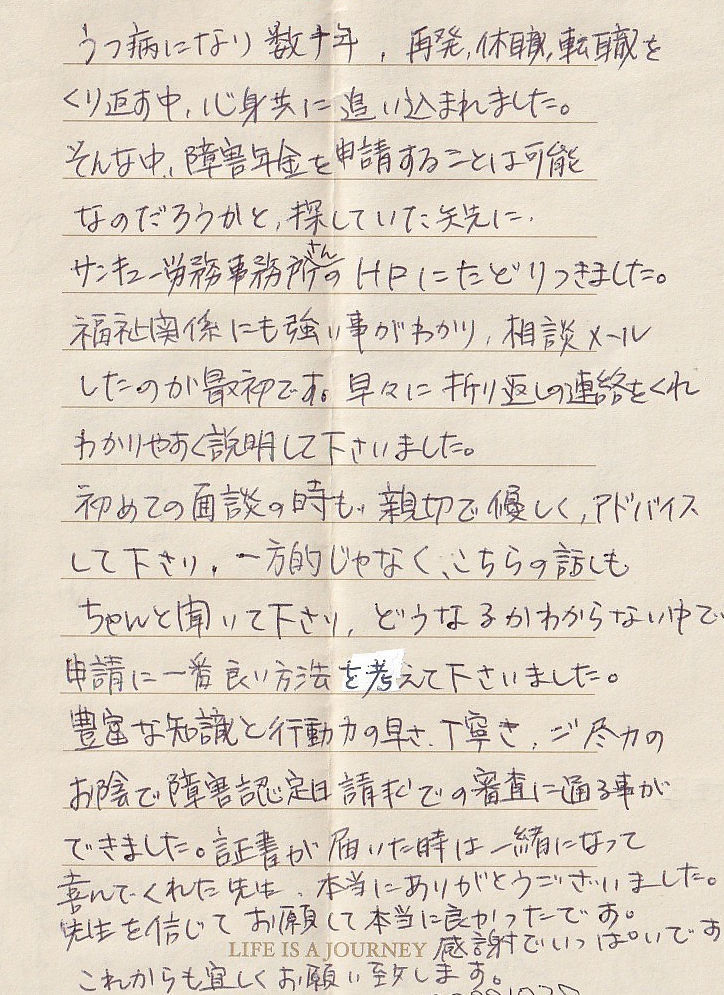 うつ病になり数十年、再発、休職、転職を
くり返す中、心身共に追い込まれました。
そんな中、障害年金を申請することは可能
なのだろうかと、探していた矢先に、
サンキュー労務事務所さんのHPにたどりつきました。
福祉関係にも強い事がわかり、相談メール
したのが最初です。早々に折り返しの連絡をくれ
わかりやすく説明して下さいました。
初めての面談の時も、親切で優しく、アドバイス
して下さり、一方的じゃなく、こちらの話しも
ちゃんと聞いて下さり、どうなるかわからない中で
申請に一番良い方法を考えて下さいました。
豊富な知識と行動力の早さ、丁寧さ、ご尽力の
お陰で障害認定日請求での審査に通る事が
できました。証書が届いた時は一緒になって
喜んでくれた先生、本当にありがとうございました。
先生を信じてお願して本当に良かったです。
LIFE IS A JOURNEY 感謝でいっぱいです
これからも宜しくお願い致します。